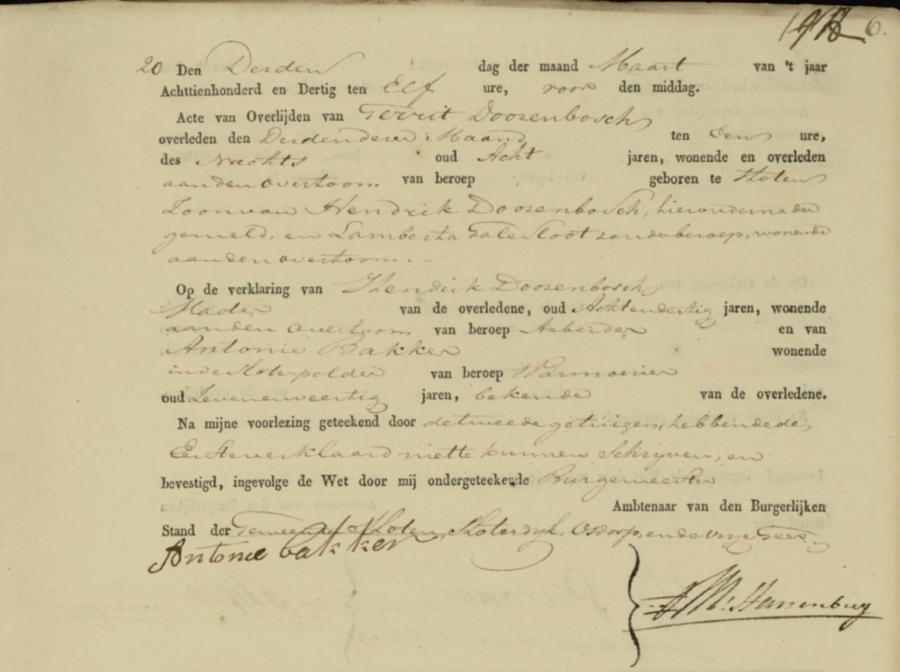 6.
20 Den Derden dag der maand Maart van 't jaar
Achttienhonderd en Dertig ten Elf ure, voor den middag.
Acte van Overlijden van Gerrit Doozenbosch
overleden den Derden dezer Maand ten een ure,
des Nachts oud Acht jaren, wonende en overleden
aan den overtoom van beroep geboren te Sloten
Zoon van Hendrik Doozenbosch, hieronder nader
gemeld, en Lamberta Sloot zonder beroep, wonende
aan den overtoom.
Op de verklaring van Hendrik Doozenbosch
Vader van de overledene, oud Achtendertig jaren, wonende
aan den overtoom van beroep Arbeider en van
Antonie Bakker wonende
in de Sloterpolder van beroep Warmoezier
oud Zevenenveertig jaren, bekende van de overledene.
Na mijne voorlezing geteekend door de tweede getuigen, hebbende de
Eerste verklaard niet te kunnen Schryven, en
bevestigd, ingevolge de Wet door mij ondergeteekende Burgemeester
Ambtenaar van den Burgerlijken
Stand der Gemeente Sloten, Sloterdyk, Osdorp, en de vrye Geer
Antonie bakker